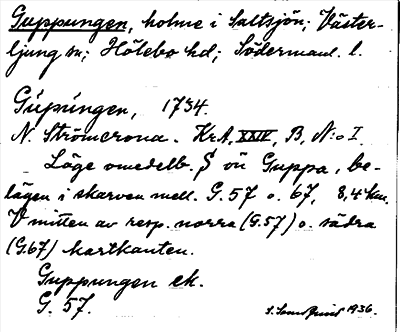 Guppungen, holme i Saltsjön; Väster-
ljung sn; Hölebo hd; Södermanl. l.
Gúpúngen, 1734.
N. Strömcrona. KrA, XXIV, B, N:o I.
Läge omedelb. S ön Guppa, be-
lägen i skarven mell. G. 57 o. 67, 8,4 km.
V mitten av resp. norra (G.57) o. södra
(G.67) kartkanten.
Guppungen ek.
G. 57.
1936.